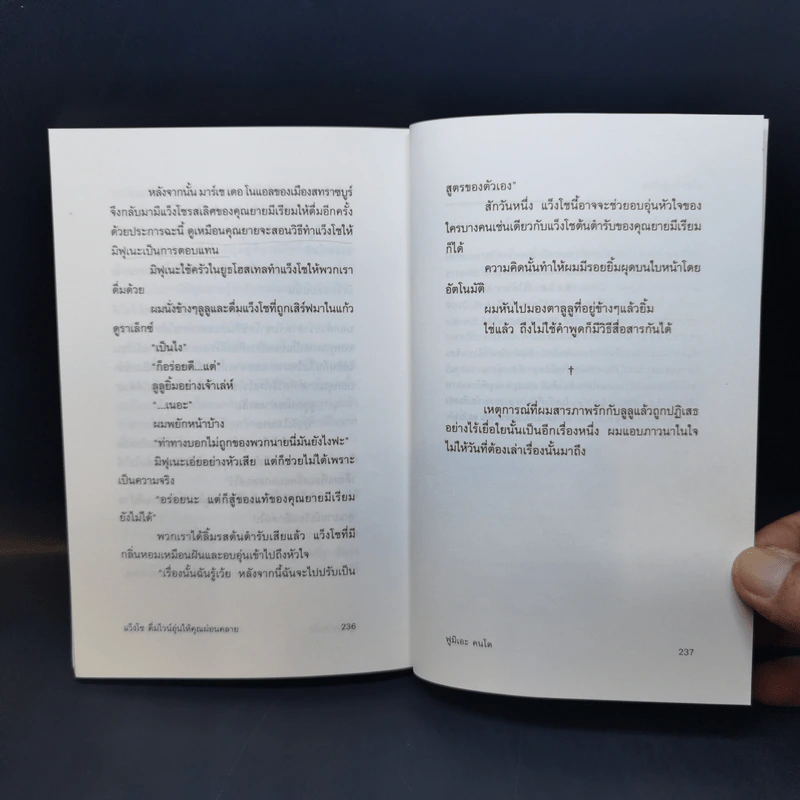 หลังจากนั้น มาร์เช เดอ โนแอลของเมืองสทราซบูร์
จึงกลับมามีแว็งโชรสเลิศของคุณยายมีเรียมให้ดื่มอีกครั้ง
ด้วยประการฉะนี้ ดูเหมือนคุณยายจะสอนวิธีทำแว็งโชให้
มิฟุเนะเป็นการตอบแทน
มิฟุเนะใช้ครัวในยูธโฮสเทลทำแว็งโชให้พวกเรา
ดื่มด้วย
ผมนั่งข้างๆลูลูและดื่มแว็งโชที่ถูกเสิร์ฟมาในแก้ว
ดูราเล็กซ์
"เป็นไง"
"ก็อร่อยดี...แต่"
ลูลูยิ้มอย่างเจ้าเล่ห์
"...เนอะ"
ผมพยักหน้าบ้าง
"ท่าทางบอกไม่ถูกของพวกนายนี่มันยังไงฟะ"
มิฟุเนะเอ่ยอย่างหัวเสีย แต่ก็ช่วยไม่ได้เพราะ
เป็นความจริง
"อร่อยนะ แต่ก็สู้ของแท้ของคุณยายมีเรียม
ยังไม่ได้"
พวกเราได้ลิ้มรสต้นตำรับเสียแล้ว แว็งโชที่มี
กลิ่นหอมเหมือนฝันและอบอุ่นเข้าไปถึงหัวใจ
"เรื่องนั้นฉันรู้เว้ย หลังจากนี้ฉันจะไปปรับเป็น
แว็งโช ดื่มไวน์อุ่นให้คุณผ่อนคลาย 236
สูตรของตัวเอง"
สักวันหนึ่ง แว็งโชนี้อาจจะช่วยอบอุ่นหัวใจของ
ใครบางคนเช่นเดียวกับแว็งโชต้นตำรับของคุณยายมีเรียม
ก็ได้
ความคิดนั้นทำให้ผมมีรอยยิ้มผุดบนใบหน้าโดย
อัตโนมัติ
ผมหันไปมองตาลูลูที่อยู่ข้างๆแล้วยิ้ม
ใช่แล้ว ถึงไม่ใช้คำพูดก็มีวิธีสื่อสารกันได้
†
เหตุการณ์ที่ผมสารภาพรักกับลูลูแล้วถูกปฏิเสธ
อย่างไร้เยื่อใยนั้นเป็นอีกเรื่องหนึ่ง ผมแอบภาวนาในใจ
ไม่ให้วันที่ต้องเล่าเรื่องนั้นมาถึง
ฟูมิเอะ คนโด 237